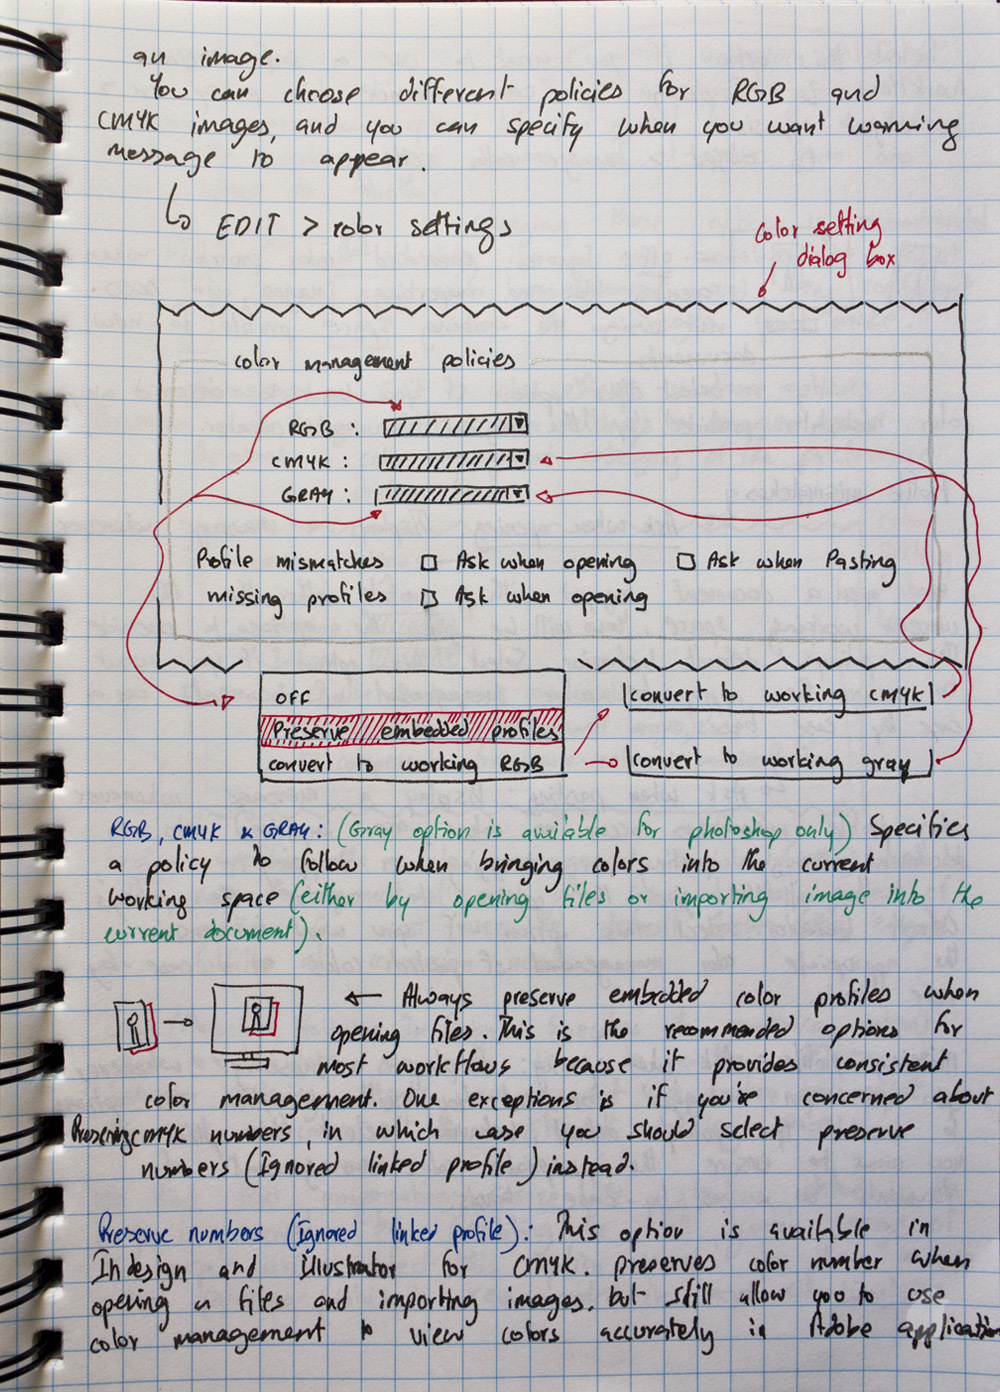 an image.
You can choose different policies for RGB and
CMYK images, and you can specify when you want warning
message to appear.
EDIT > color settings
color setting
dialog box
color management policies
RGB :
CMYK :
GRAY :
Profile mismatches □ Ask when opening □ Ask when Pasting
missing profiles □ Ask when opening
OFF
Preserve embedded profiles
convert to working RGB
convert to working CMYK
convert to working gray
RGB, CMYK & GRAY : (Gray option is available for photoshop only) Specifies
a policy to follow when bringing colors into the current
working space (either by opening files or importing image into the
current document).
← Always preserve embedded color profiles when
opening files. This is the recommended options for
most workflows because it provides consistent
color management. One exceptions is if you're concerned about
Preserving CMYK numbers, in which case you should select preserve
numbers (Ignored linked profile) instead.
Preserve numbers (Ignored linked profile) : This option is available in
Indesign and illustrator for CMYK. preserves color number when
opening a files and importing images, but still allow you to use
color management to view colors accurately in Adobe application